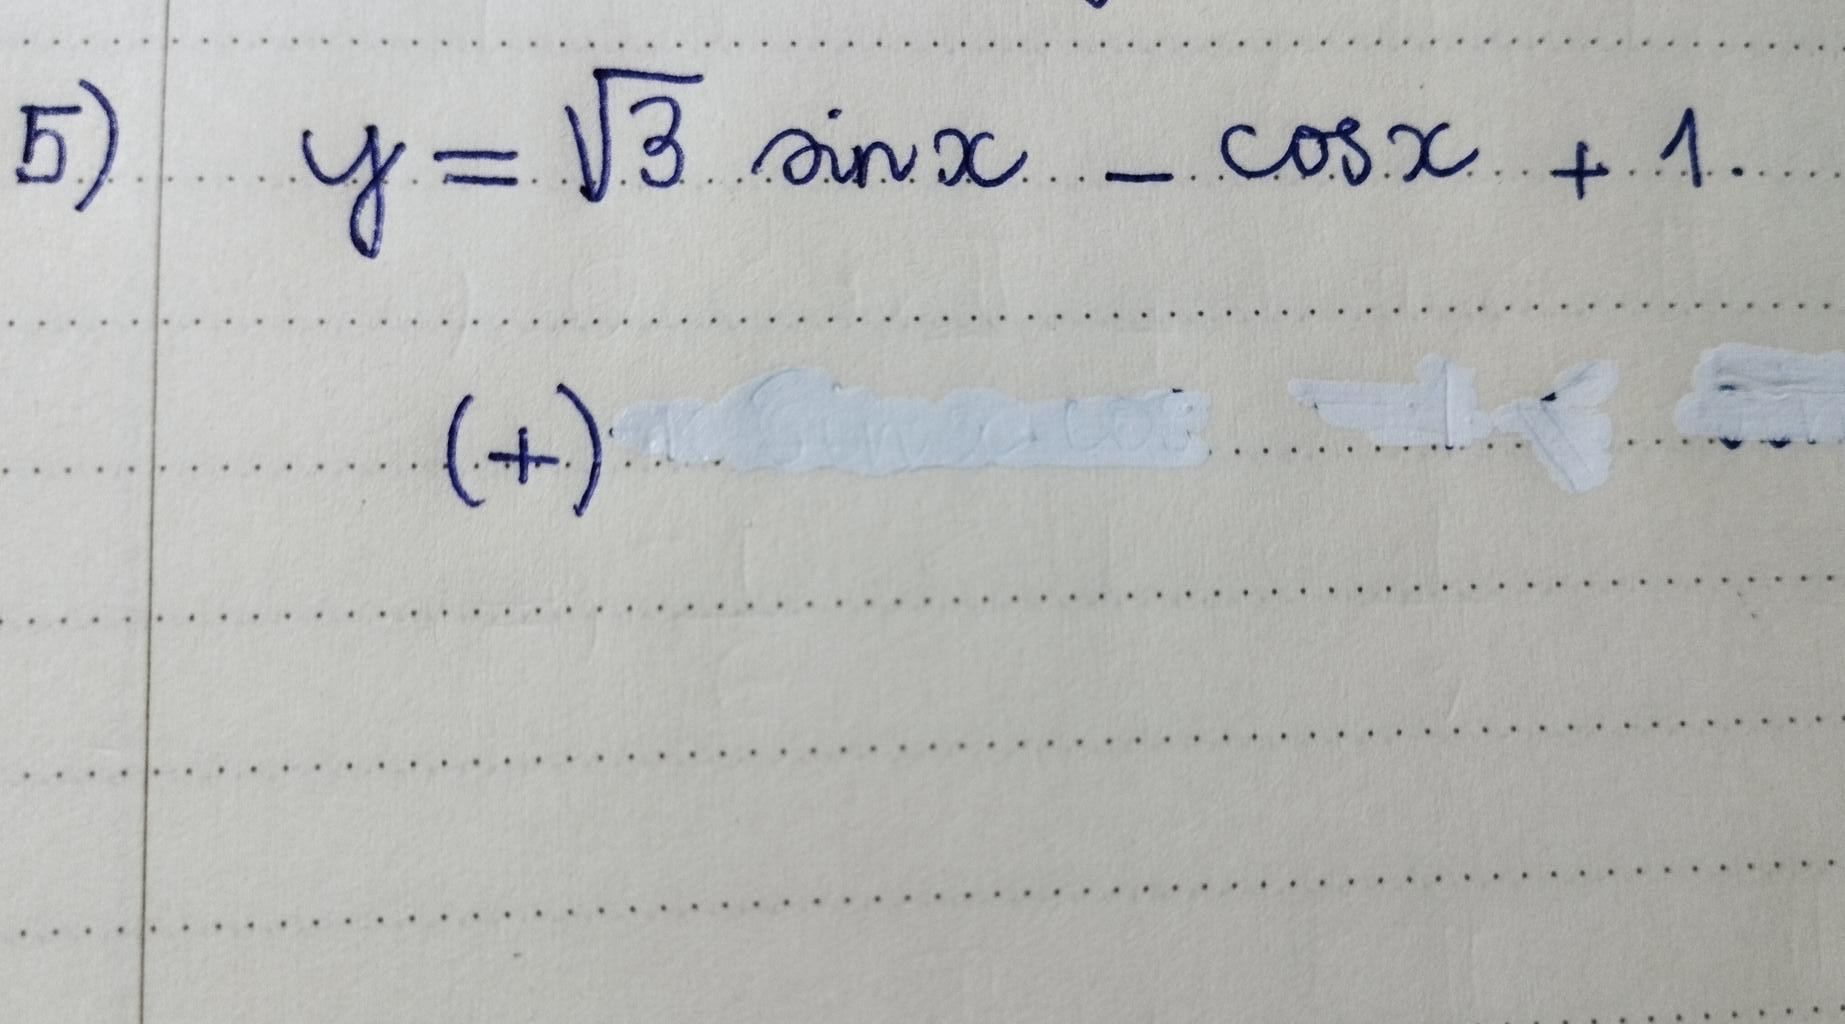 5) y = √3 sin x - cos x + 1.
(+)